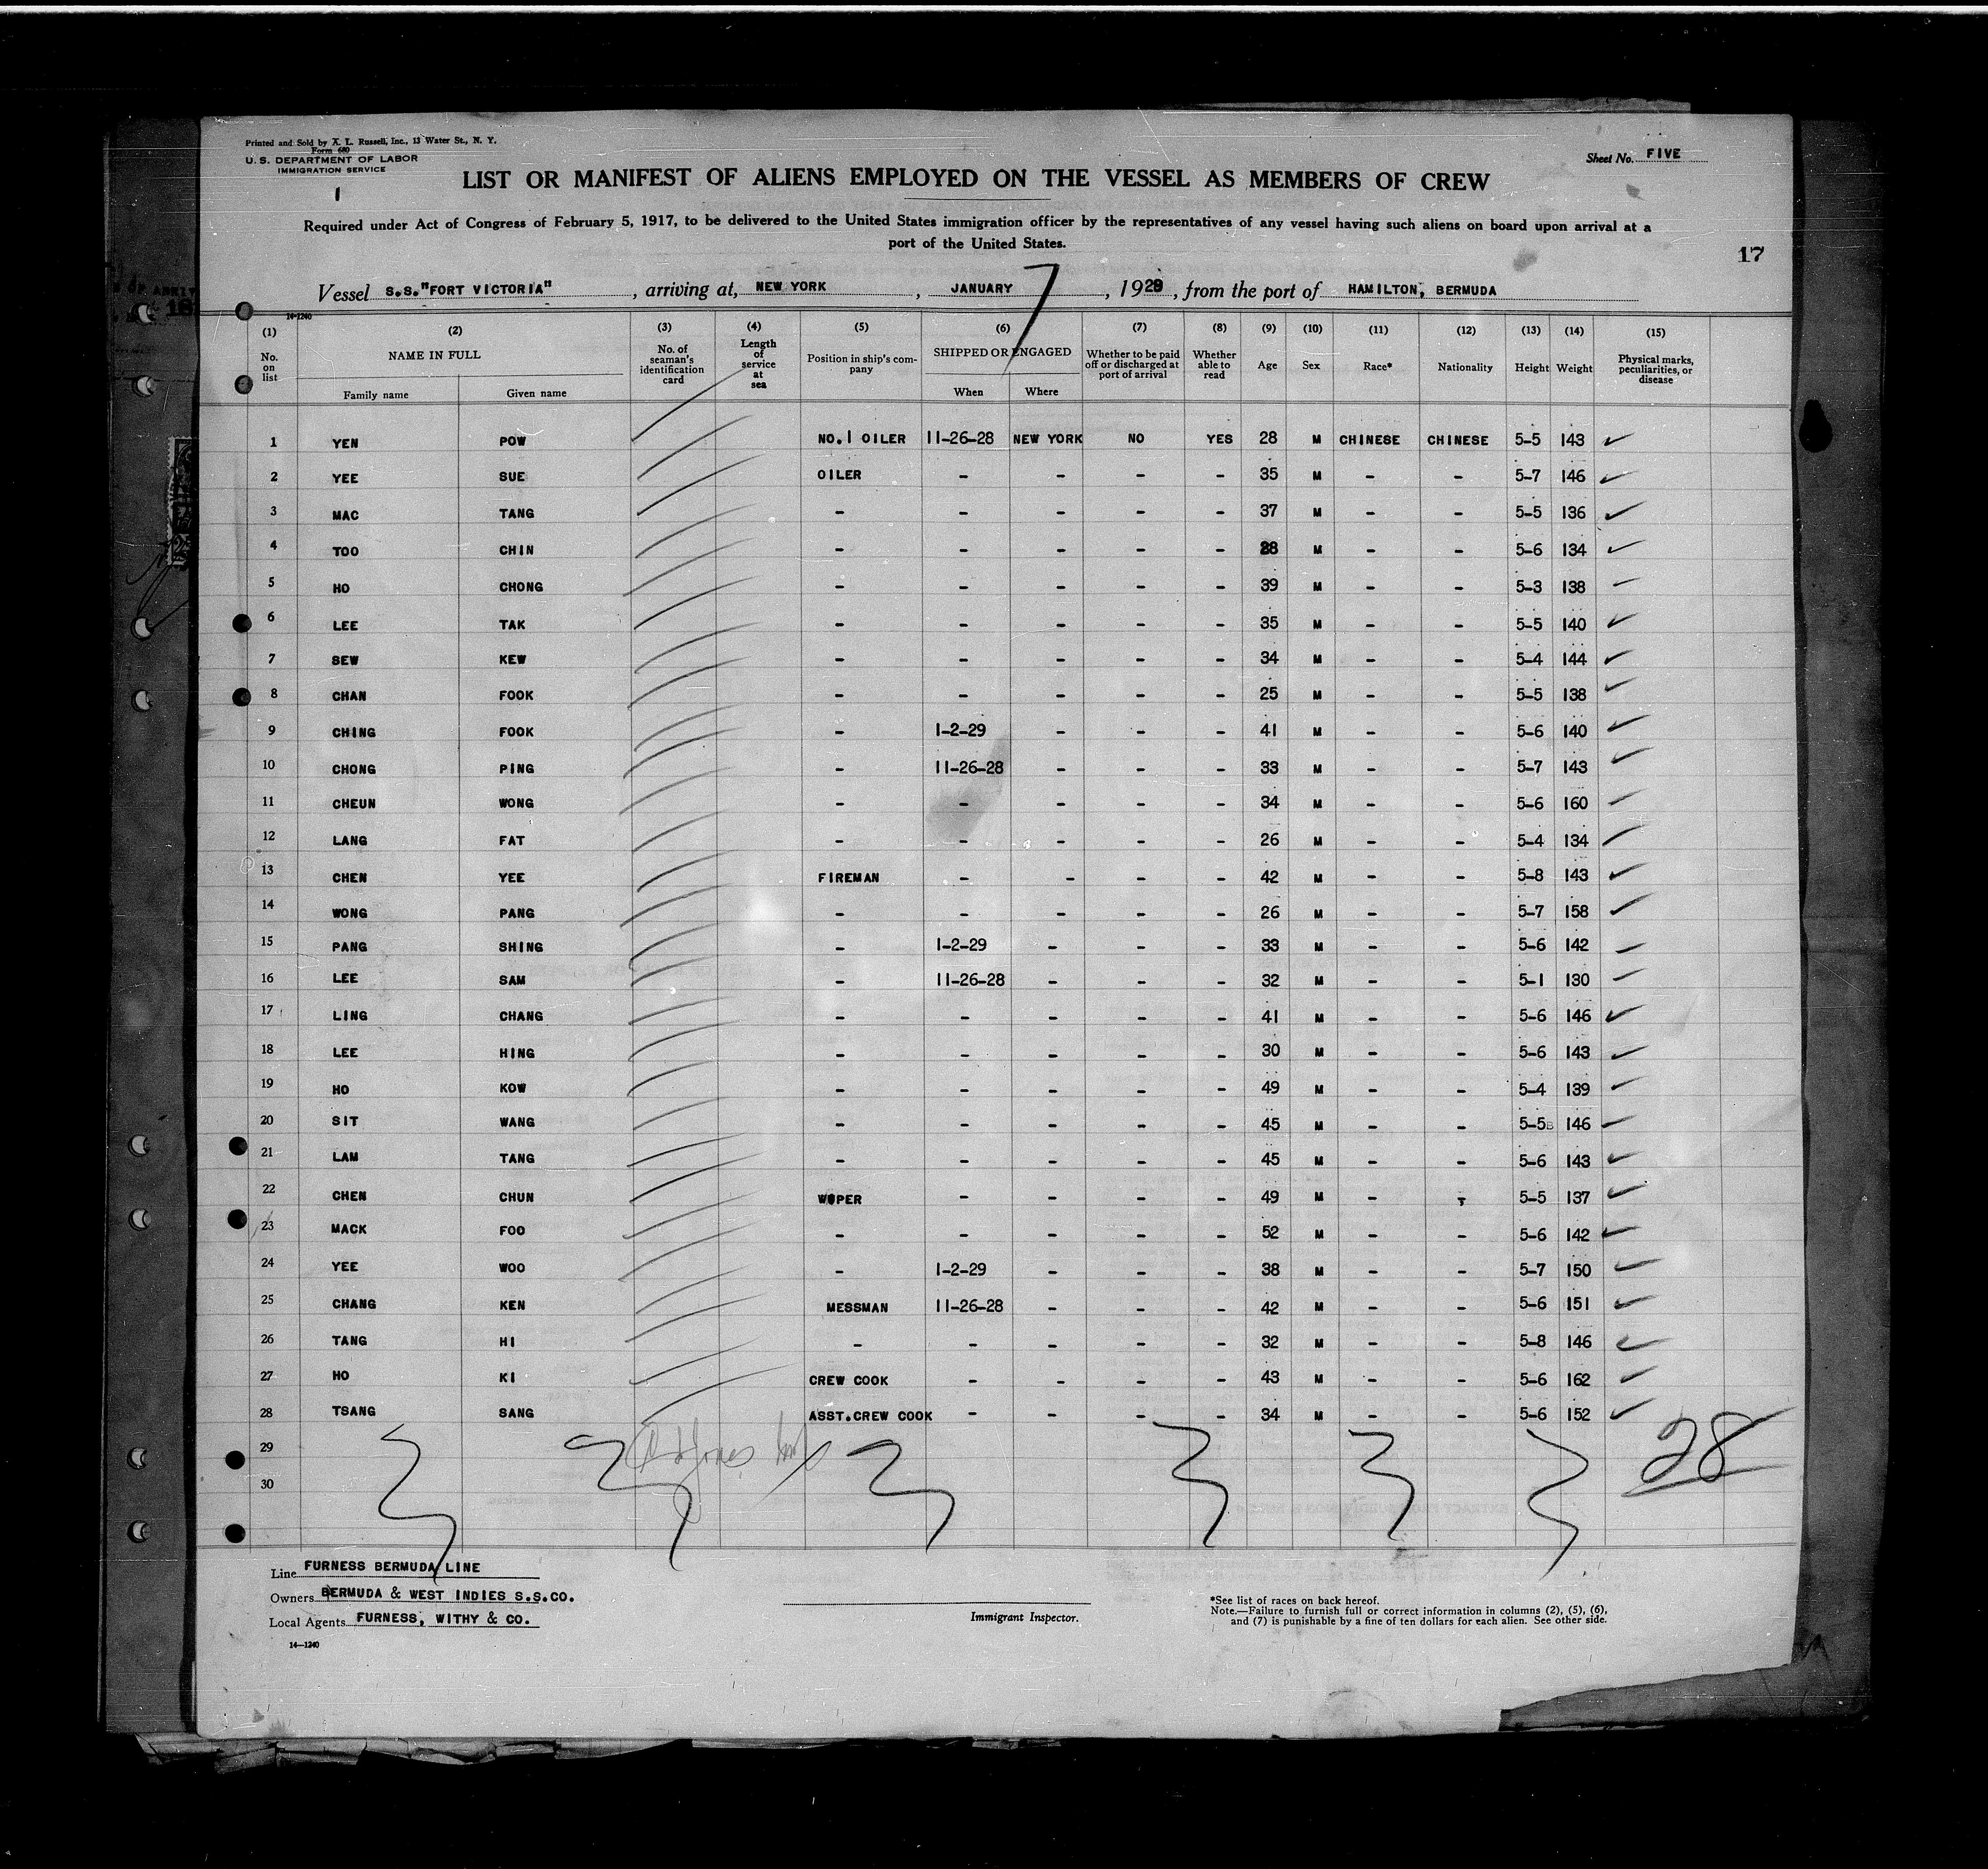 Printed and Sold by X. L. Russell, Inc., 13 Water St., N. Y.
Form 680
U. S. DEPARTMENT OF LABOR
IMMIGRATION SERVICE
1
Sheet No. FIVE
LIST OR MANIFEST OF ALIENS EMPLOYED ON THE VESSEL AS MEMBERS OF CREW
Required under Act of Congress of February 5, 1917, to be delivered to the United States immigration officer by the representatives of any vessel having such aliens on board upon arrival at a
port of the United States.
17
Vessel S.S."FORT VICTORIA", arriving at, NEW YORK, JANUARY 7, 1929, from the port of HAMILTON, BERMUDA
14-1240
(1) (2) (3) (4) (5) (6) (7) (8) (9) (10) (11) (12) (13) (14) (15)
No. on list NAME IN FULL Family name Given name No. of seaman's identification card Length of service at sea Position in ship's company SHIPPED OR ENGAGED When Where Whether to be paid off or discharged at port of arrival Whether able to read Age Sex Race* Nationality Height Weight Physical marks, peculiarities, or disease
1 YEN POW NO.1 OILER 11-26-28 NEW YORK NO YES 28 M CHINESE CHINESE 5-5 143 ✓
2 YEE SUE OILER - - - - 35 M - - 5-7 146 ✓
3 MAC TANG - - - - - 37 M - - 5-5 136 ✓
4 TOO CHIN - - - - - 28 M - - 5-6 134 ✓
5 HO CHONG - - - - - 39 M - - 5-3 138 ✓
6 LEE TAK - - - - - 35 M - - 5-5 140 ✓
7 SEW KEW - - - - - 34 M - - 5-4 144 ✓
8 CHAN FOOK - - - - - 25 M - - 5-5 138 ✓
9 CHING FOOK - 1-2-29 - - - 41 M - - 5-6 140 ✓
10 CHONG PING - 11-26-28 - - - 33 M - - 5-7 143 ✓
11 CHEUN WONG - - - - - 34 M - - 5-6 160 ✓
12 LANG FAT - - - - - 26 M - - 5-4 134 ✓
13 CHEN YEE FIREMAN - - - - 42 M - - 5-8 143 ✓
14 WONG PANG - - - - - 26 M - - 5-7 158 ✓
15 PANG SHING - 1-2-29 - - - 33 M - - 5-6 142 ✓
16 LEE SAM - 11-26-28 - - - 32 M - - 5-1 130 ✓
17 LING CHANG - - - - - 41 M - - 5-6 146 ✓
18 LEE HING - - - - - 30 M - - 5-6 143 ✓
19 HO KOW - - - - - 49 M - - 5-4 139 ✓
20 SIT WANG - - - - - 45 M - - 5-5 146 ✓
21 LAM TANG - - - - - 45 M - - 5-6 143 ✓
22 CHEN CHUN WIPER - - - - 49 M - - 5-5 137 ✓
23 MACK FOO - - - - - 52 M - - 5-6 142 ✓
24 YEE WOO - 1-2-29 - - - 38 M - - 5-7 150 ✓
25 CHANG KEN MESSMAN 11-26-28 - - - 42 M - - 5-6 151 ✓
26 TANG HI - - - - - 32 M - - 5-8 146 ✓
27 HO KI CREW COOK - - - - 43 M - - 5-6 162 ✓
28 TSANG SANG ASST.CREW COOK - - - - 34 M - - 5-6 152 ✓
29
30
28
Line FURNESS BERMUDA LINE
Owners BERMUDA & WEST INDIES S.S.CO.
Local Agents FURNESS, WITHY & CO.
14—1240
Immigrant Inspector.
*See list of races on back hereof.
Note.—Failure to furnish full or correct information in columns (2), (5), (6),
and (7) is punishable by a fine of ten dollars for each alien. See other side.